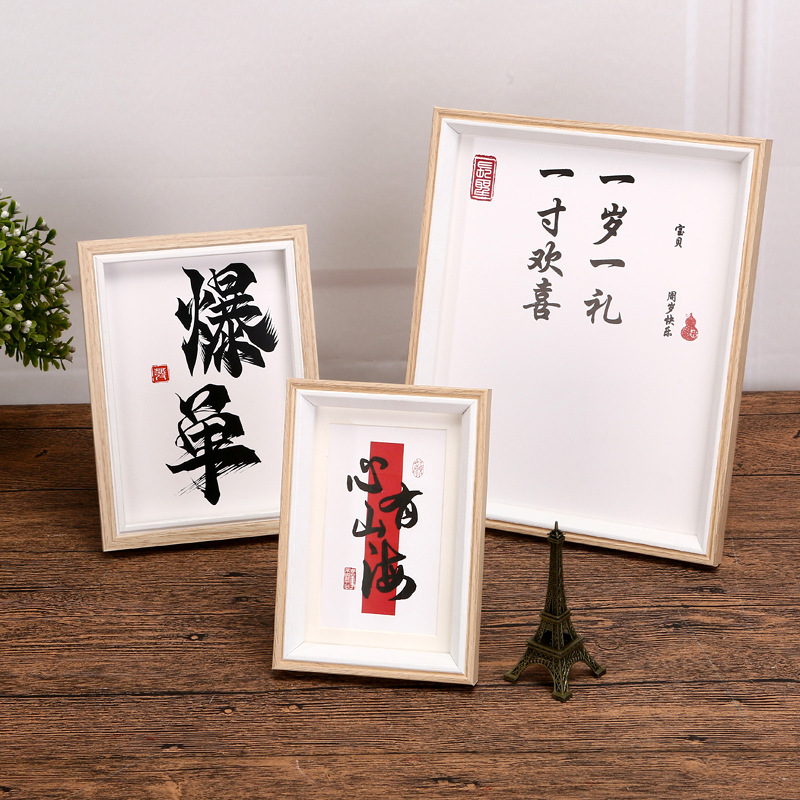 爆单
心有山海
宝贝
周岁快乐
一岁一礼
一寸欢喜